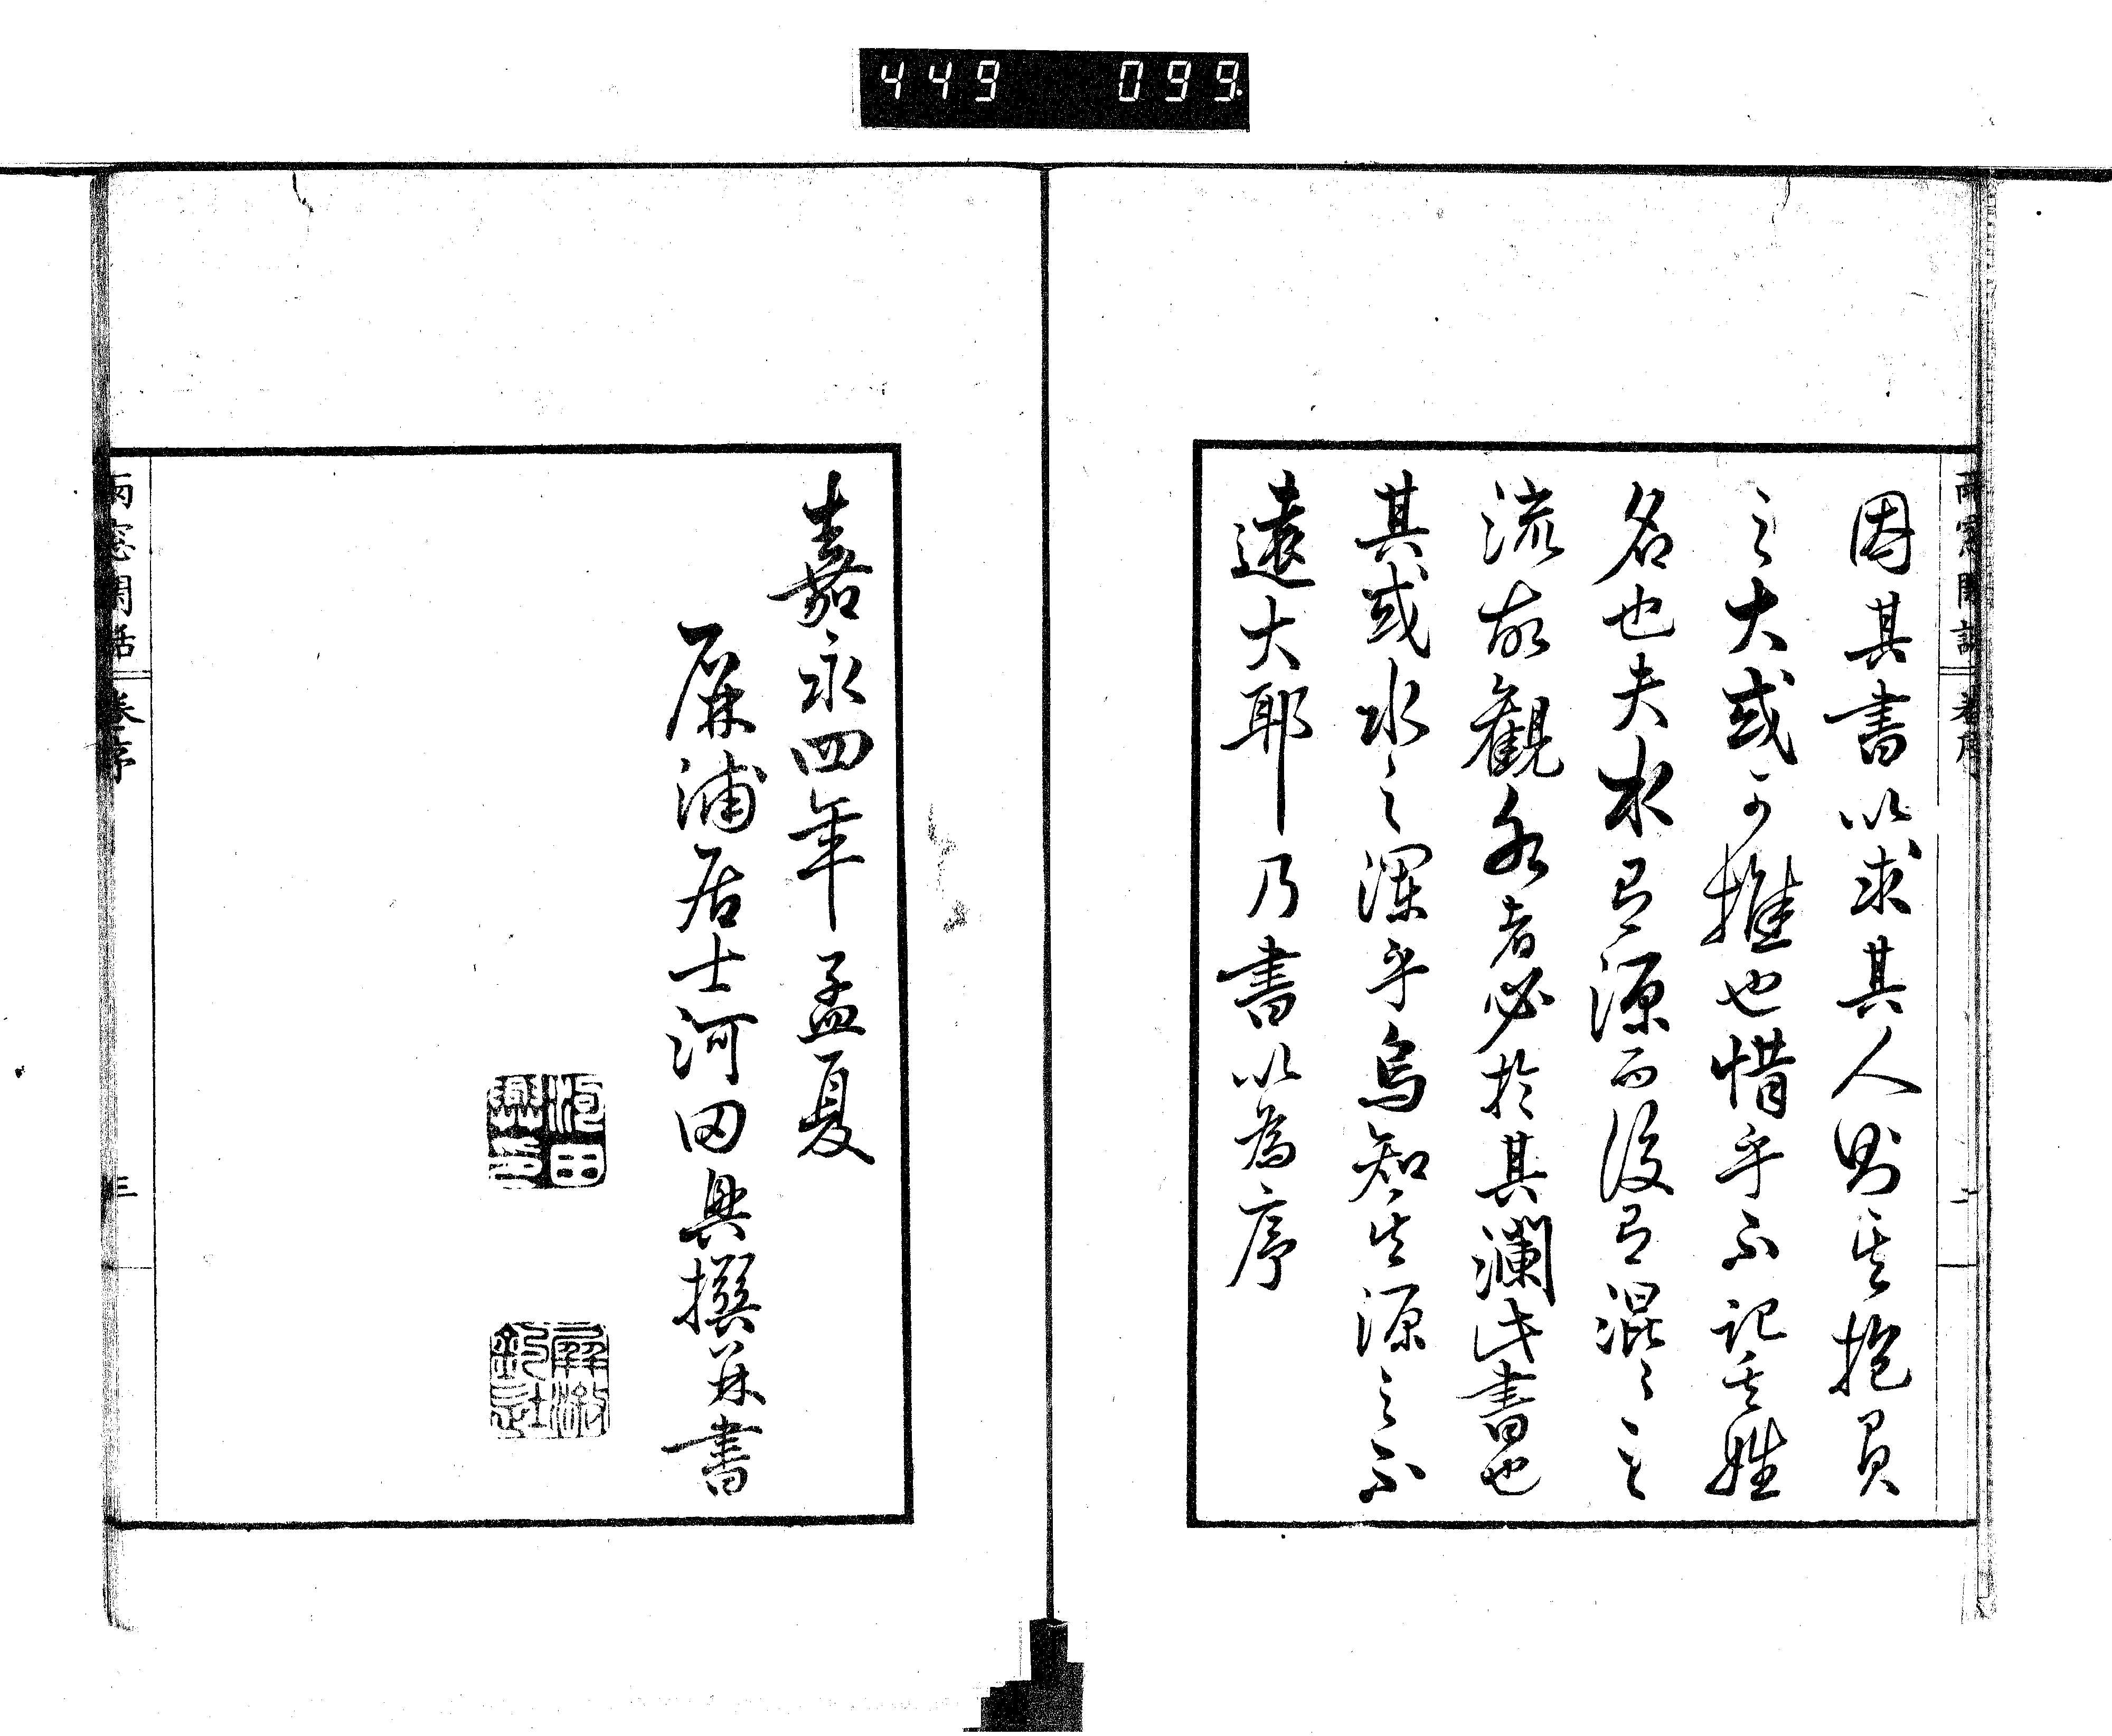 449 099.
雨窓閒話 卷序 二
因其書以求其人則其抱負
之大或可推也惜乎不記其姓
名也夫水有源而後有混〻之
流故觀水者必於其瀾此書也
其或水之瀾乎烏知其源之不
遠大耶乃書以為序
嘉永四年孟夏
屏浦居士河田興撰并書
河田興印
雨窓閒話 卷序 三